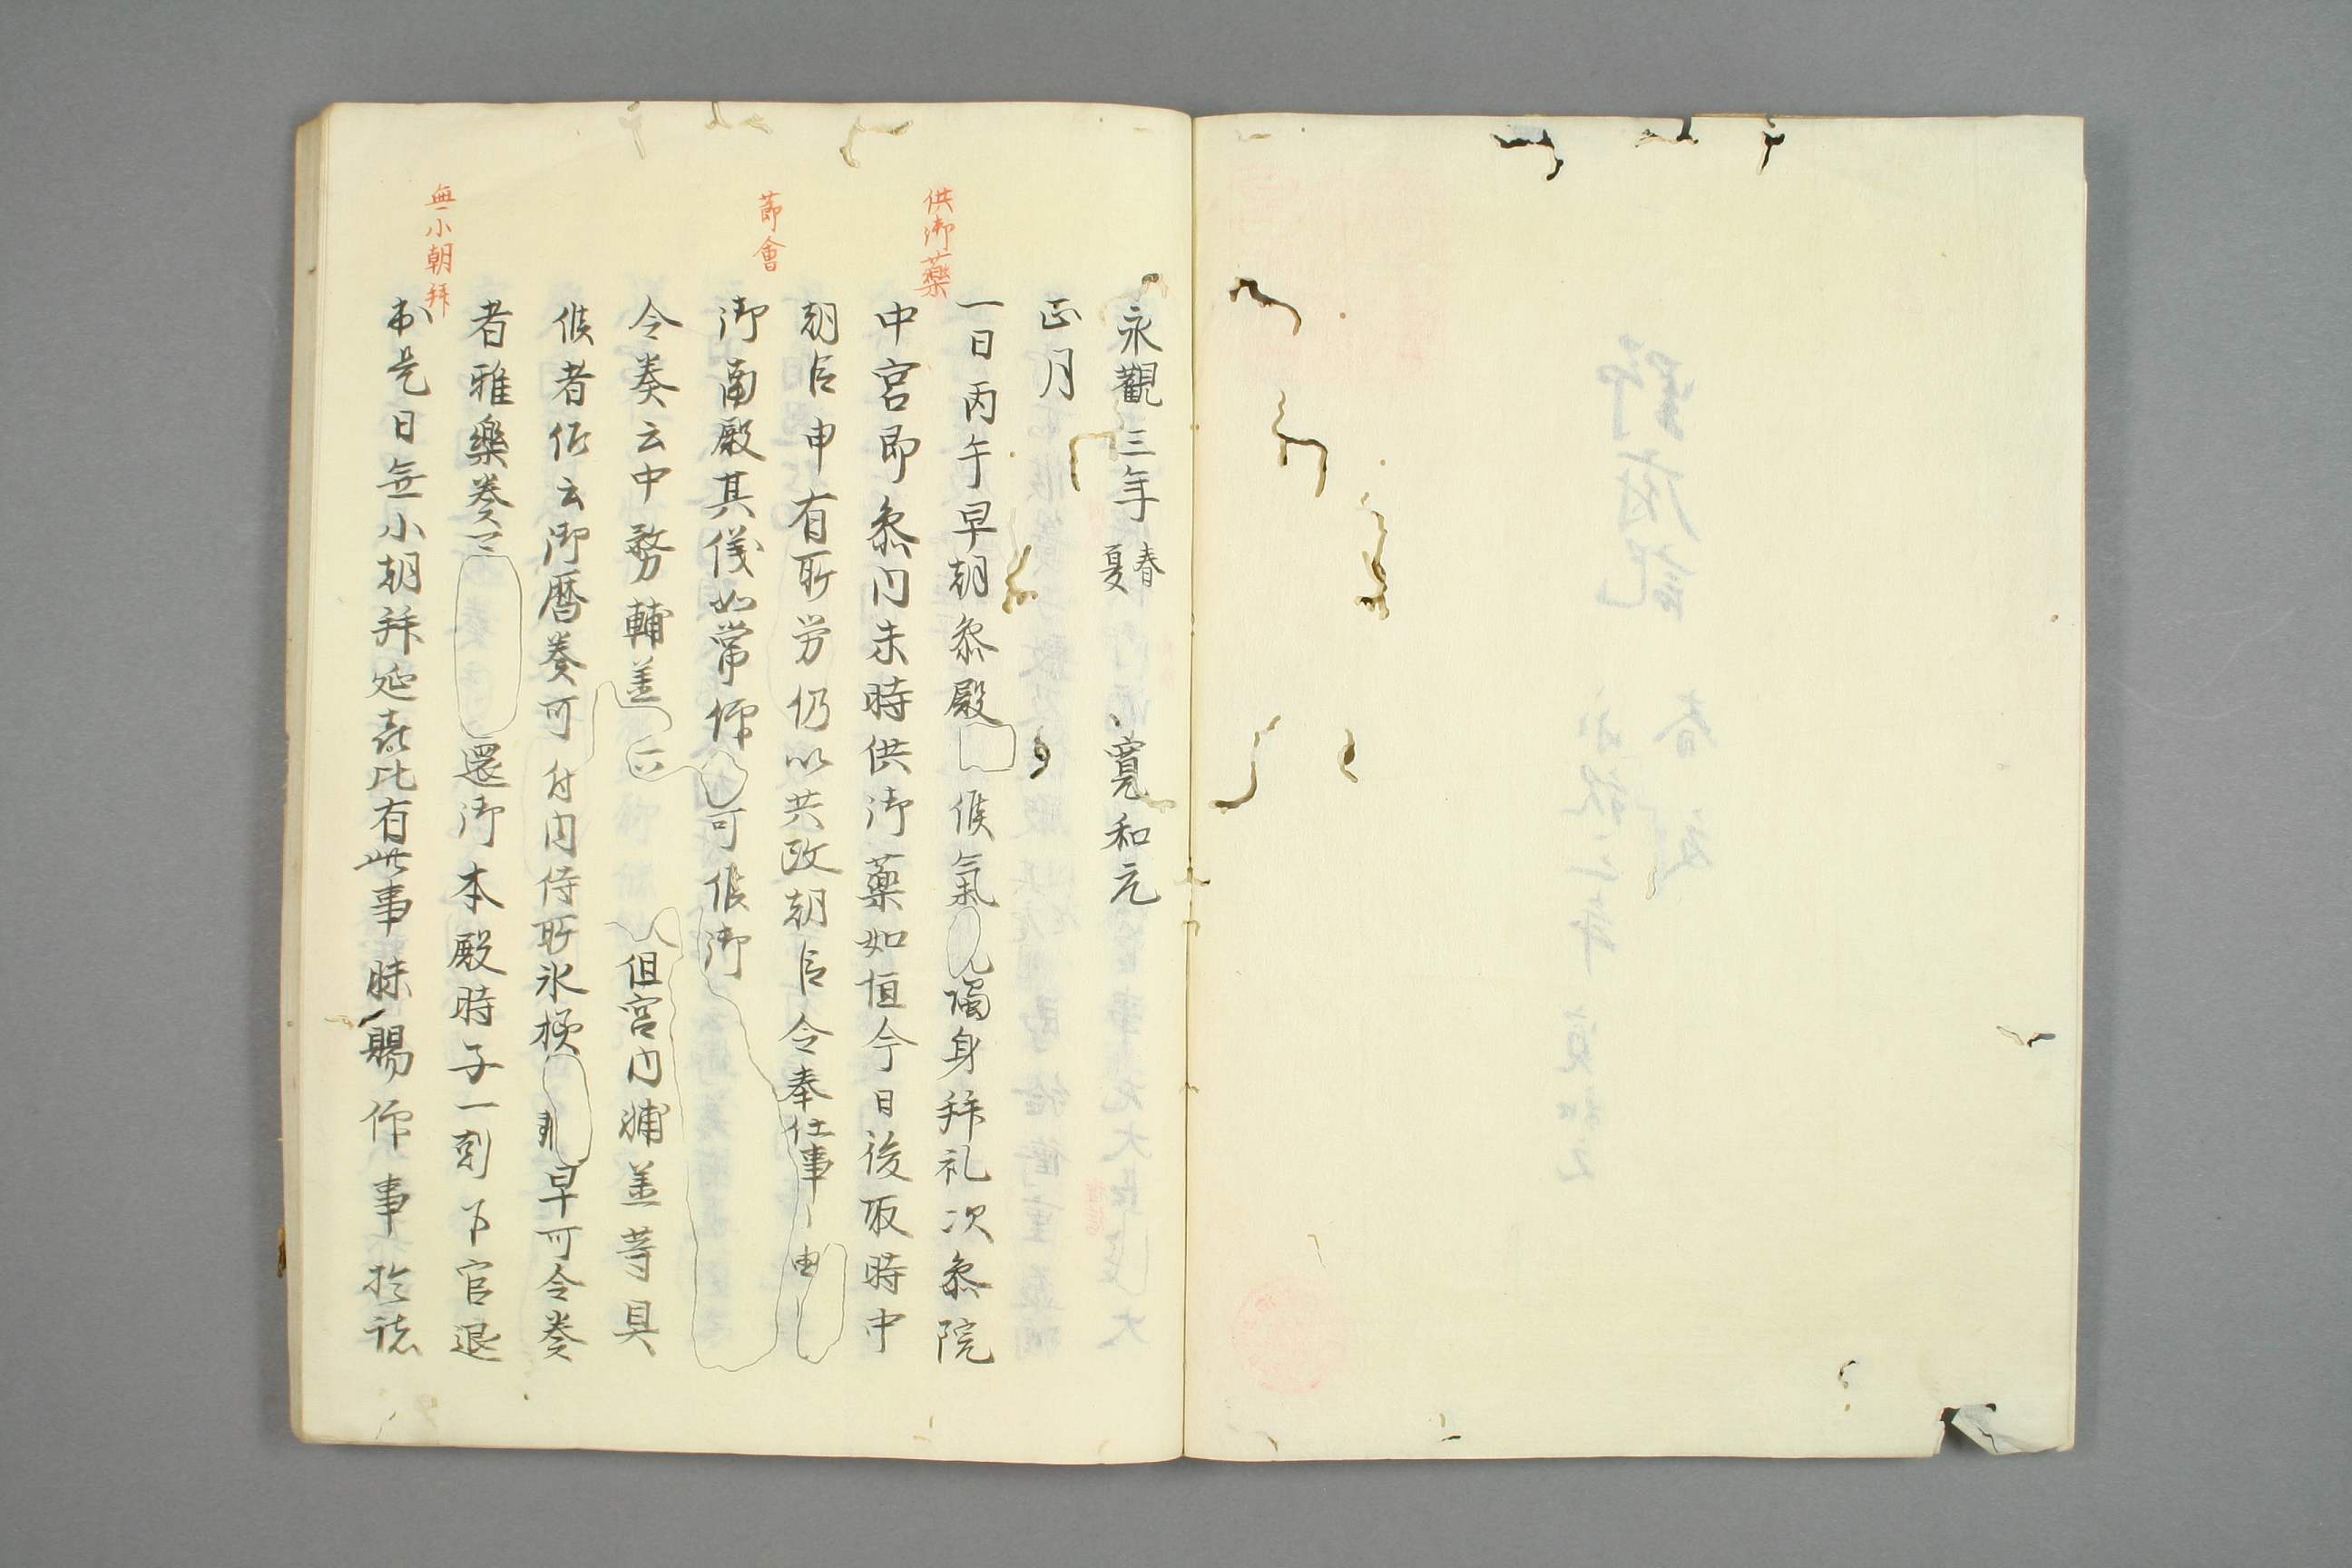 永觀三年 春夏 寛和元
正月
供御藥
一日丙午早朝叅殿候氣獨身拜礼次叅院
中宮即叅内未時供御藥如恒今日後取時中
朝臣申有所労仍以共政朝臣令奉仕事
節會
御南殿其儀如常仰可候御
令奏云中務輔並但宮内輔並等具
候者仰云御曆奏可付内侍所氷様早可令奏
者雅樂奏三還御本殿時子一刻下官退
無小朝拜
出是日無小朝拜延喜比有此事昧賜仰事於諸